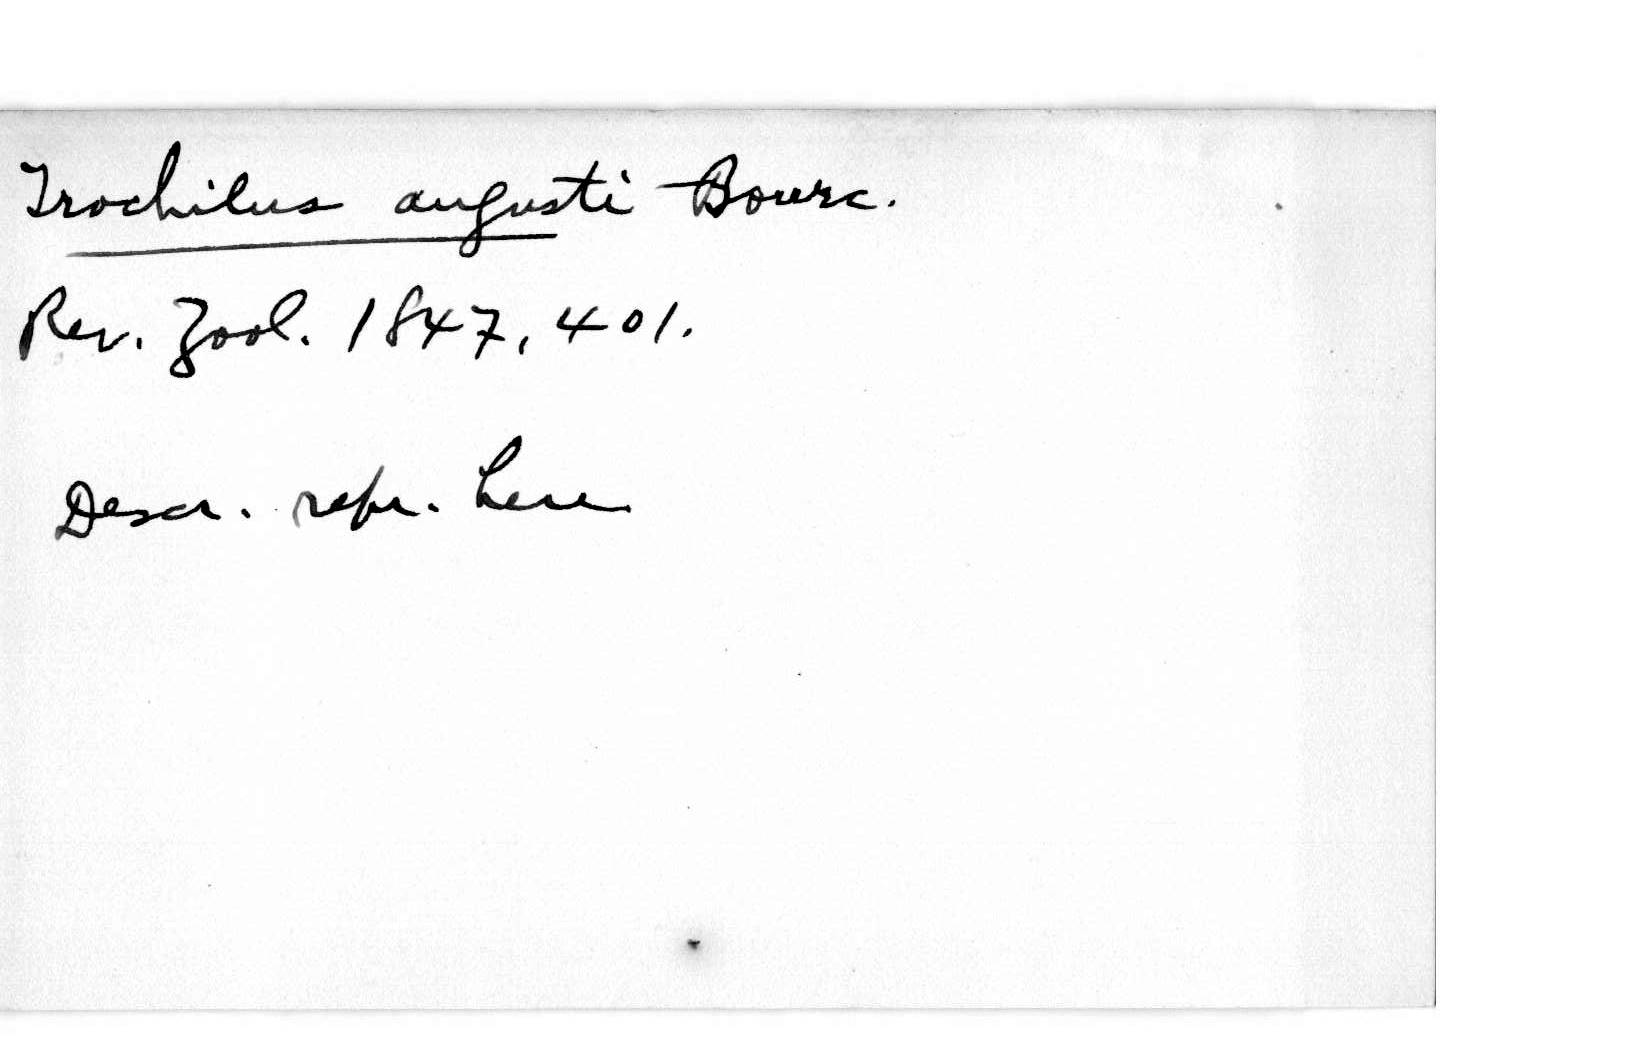 Trochilus augusti Bourc.
Rev. Zool. 1847, 401.
Descr. repr. here